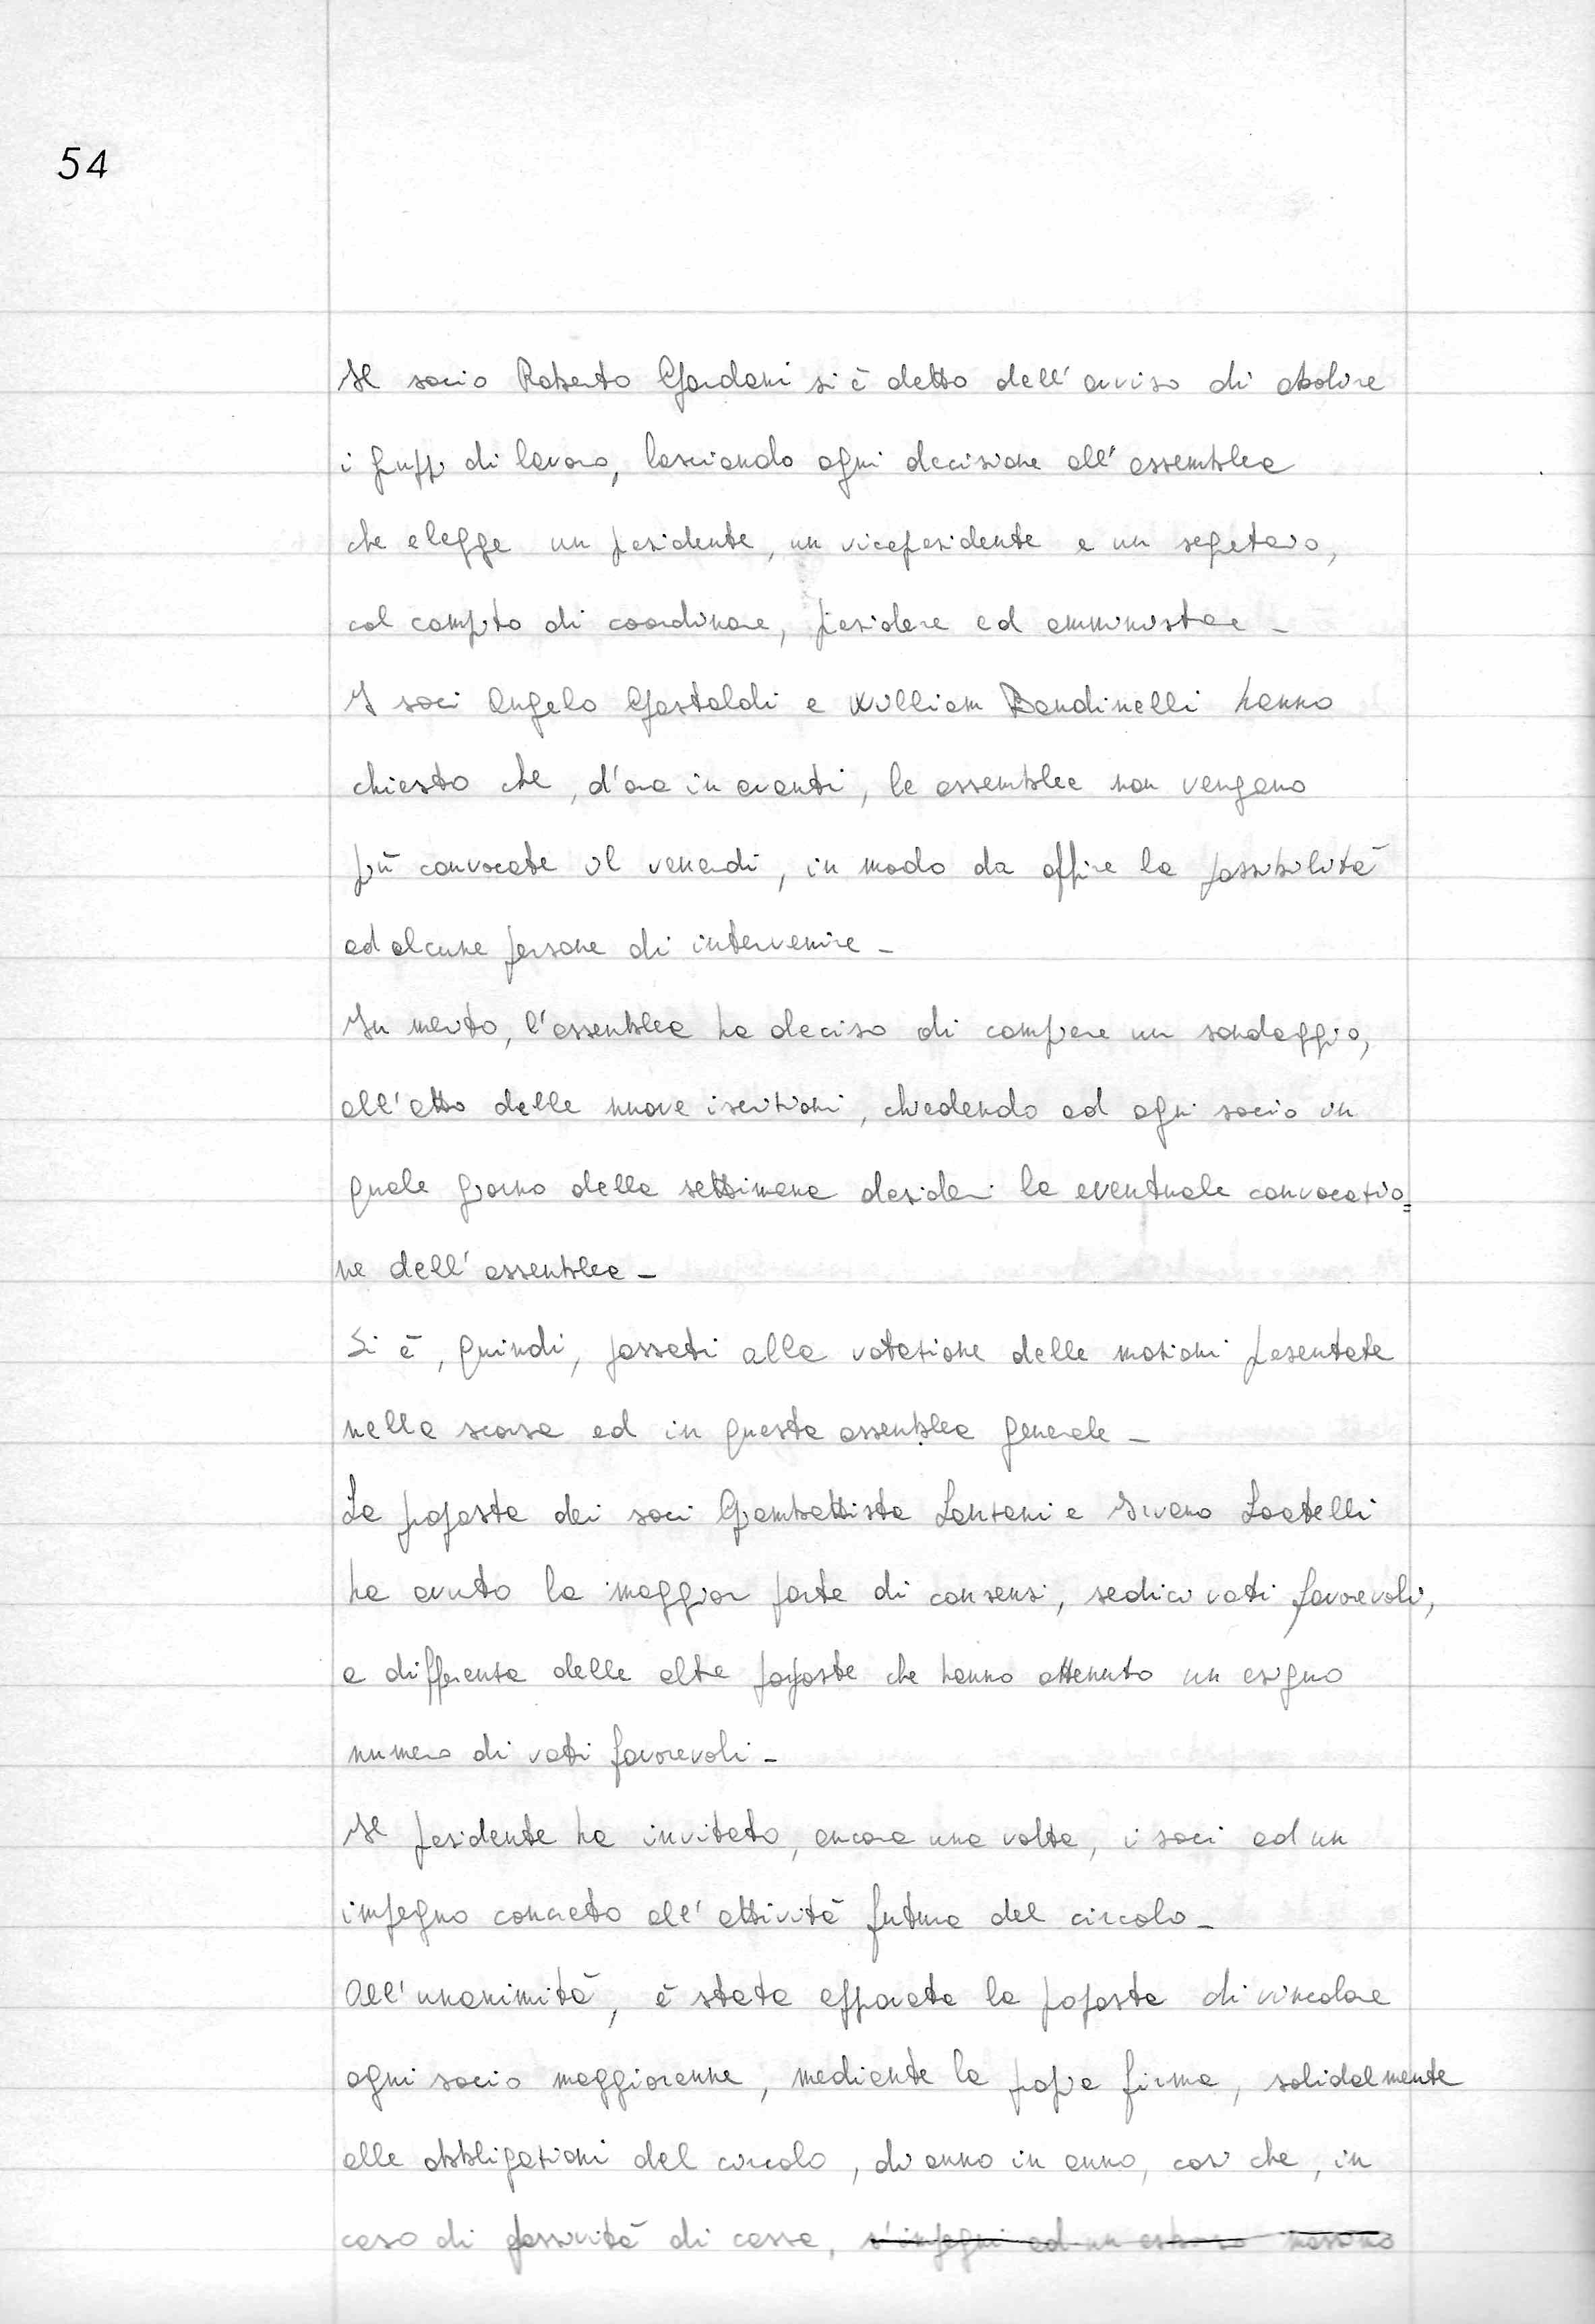 54
Il socio Roberto Gardani si è detto dell'avviso di abolire
i gruppi di lavoro, lasciando ogni decisione all'assemblea
che elegge un presidente, un vicepresidente e un segretario,
col compito di coordinare, presidere ed amministrare -
I soci Angelo Gastaldi e William Bandinelli hanno
chiesto che, d'ora in avanti, le assemblee non vengano
più convocate il venerdì, in modo da offrire la possibilità
ad alcune persone di intervenire -
In merito, l'assemblea ha deciso di compiere un sondaggio,
all'atto delle nuove iscrizioni, chiedendo ad ogni socio in
quale giorno della settimana desideri la eventuale convocazio=
ne dell'assemblea -
Si è, quindi, passati alla votazione delle mozioni presentate
nella scorsa ed in questa assemblea generale -
La proposta dei soci Giambattista Lanzani e Ivano Locatelli
ha avuto la maggior parte di consensi, sedici voti favorevoli,
a differenza delle altre proposte che hanno ottenuto un esiguo
numero di voti favorevoli -
Il presidente ha invitato, ancora una volta, i soci ad un
impegno concreto all'attività futura del circolo -
All'unanimità, è stata approvata la proposta di vincolare
ogni socio maggiorenne, mediante la propria firma, solidalmente
alle obbligazioni del circolo, di anno in anno, così che, in
caso di passività di cassa, s'impegni ad un esborso